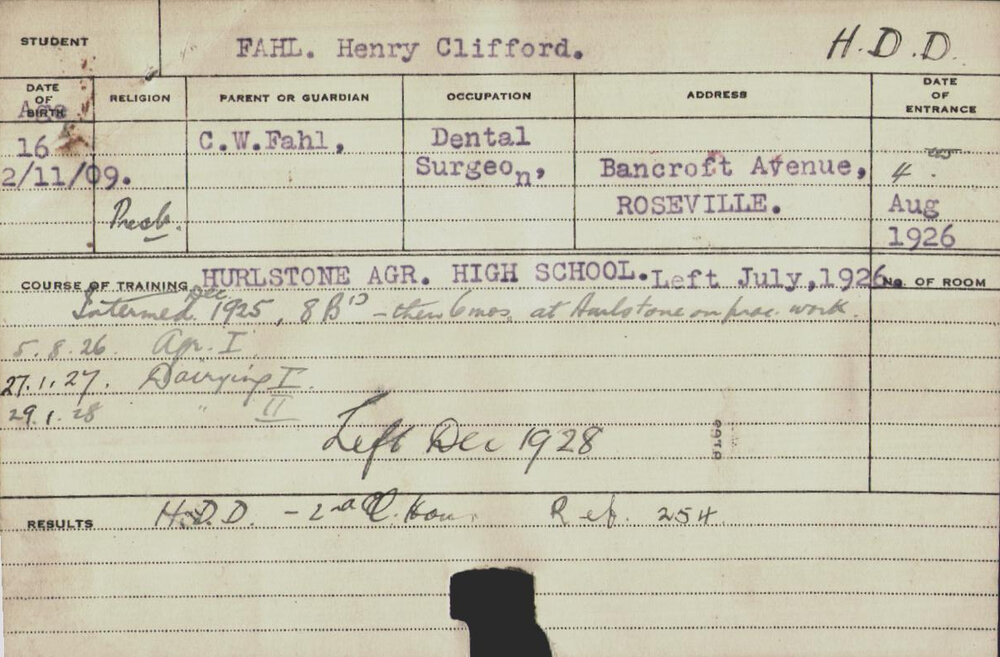 STUDENT FAHL. Henry Clifford. H.D.D.
DATE OF BIRTH RELIGION PARENT OR GUARDIAN OCCUPATION ADDRESS DATE OF ENTRANCE
Age
16 C.W.Fahl, Dental
2/11/09. Surgeon, Bancroft Avenue, 4
Presb. ROSEVILLE. Aug
1926
COURSE OF TRAINING HURLSTONE AGR. HIGH SCHOOL. Left July, 1926 No. OF ROOM
Intermed. Dec 1925, 8 B's - then 6 mos. at Hurlstone on prac. work.
5.8.26. Agr. I
27.1.27. Dairying I.
29.1.28 " II
Left Dec 1928
RESULTS H.D.D. - 2nd Cl. Hon. Ref. 254